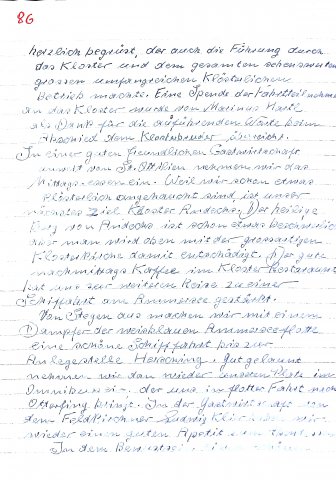 86
herzlich begrüst, der auch die Führung durch
das Kloster und dem gesamten sehenswerten
grossen umfangreichen Klösterlichem
Betrieb machte. Eine Spende der Fahrtteilnehmer
an das Kloster wurde von Marinus Hartl
als Dank für die aufführenden Worte beim
Abschied dem Klosterbruder überreicht.
In einer guten freundlichen Gastwirtschaft
unweit von St. Ottilien nehmen wir das
Mittagessen ein. Weil wir schon etwas
klösterlich angehaucht sind ist unser
nächstes Ziel Kloster Andechs. Der heilige
Berg von Andechs ist schon etwas beschwerlich
aber man wird oben mit der grossartigen
Klosterkirche damit entschädigt. Der gute
nachmittags Kaffee im Kloster Restaurant
hat uns zur weiteren Reise zu einer
Schiffahrt am Ammersee gestärkt.
Von Stegen aus machen wir mit einem
Dampfer der weisblauen Ammerseeflotte
eine schöne Schiffahrt bis zur
Anlegestelle Herrsching. Gut gelaunt
nehmen wir dan wieder unseren Platz im
Omnibus ein. der uns in flotter Fahrt nach
Otterfing bringt. In der Gastwirtschaft von
dem Feldkirchner Ludwig
wieder einen guten Apetit
In dem